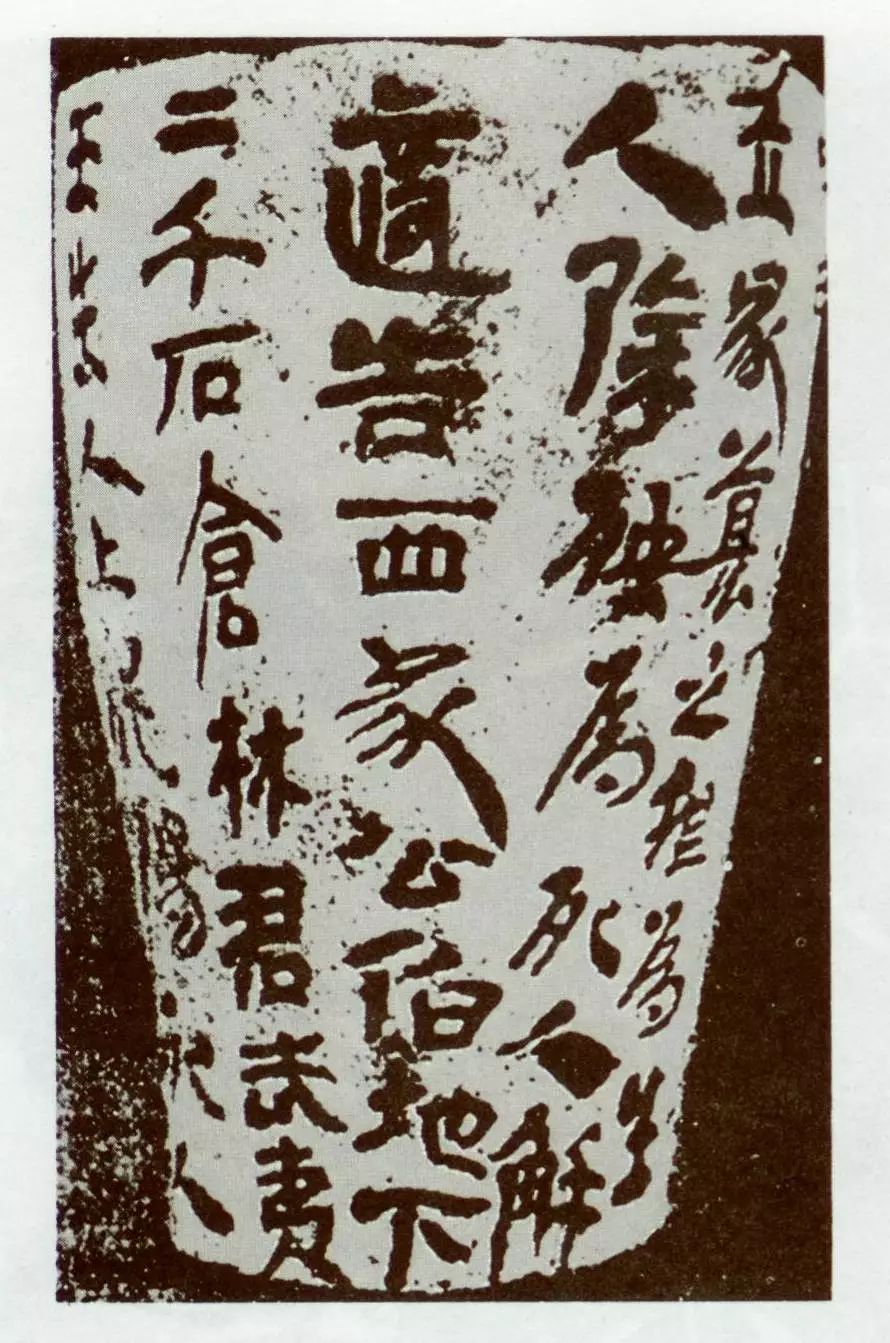 立冢墓之根為生
人除殃為死人解
適告西冢公伯地下
二千石倉林君武夷
王生人上就陽死人